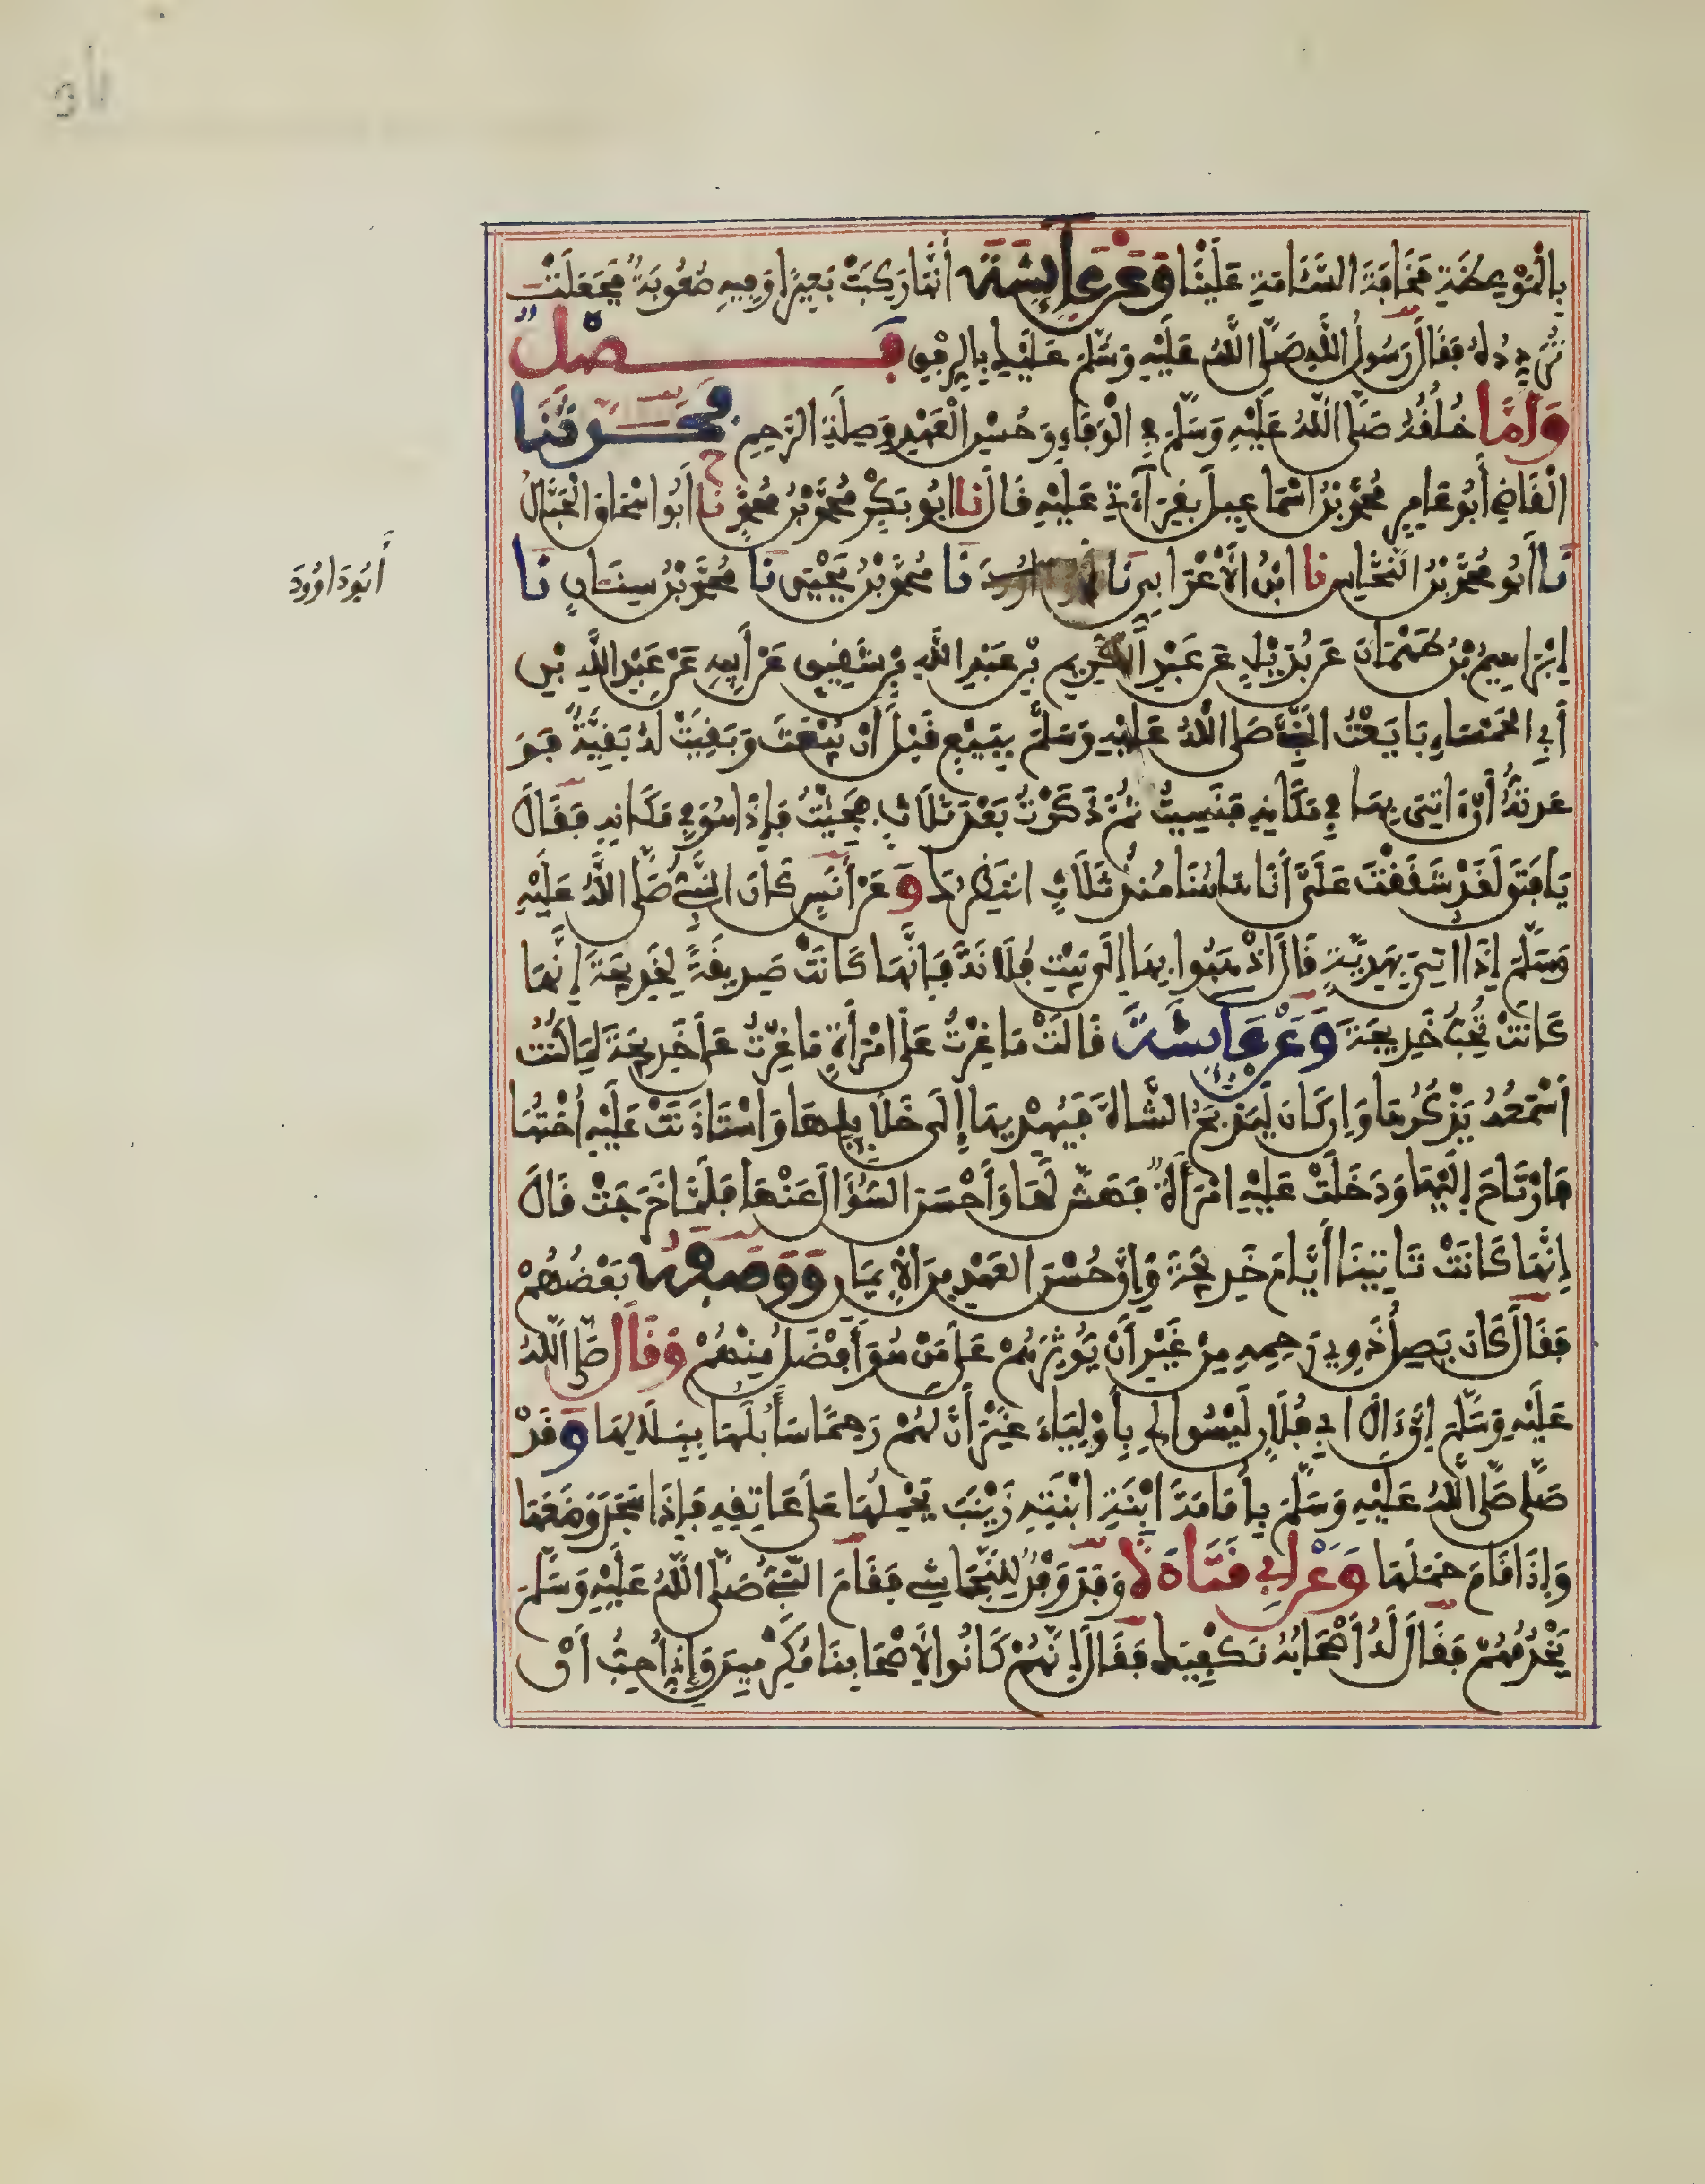 بِالْمَوْعِظَةِ مَخَافَةَ السَّئَامَةِ عَلَيْنَا وَعَنْ عَائِشَةَ أَنَّهَا رَكِبَتْ بَعِيرًا وَفِيهِ صُعُوبَةٌ فَجَعَلَتْ
تُرَدِّدُهُ فَقَالَ رَسُولُ اللَّهِ صَلَّى اللَّهُ عَلَيْهِ وَسَلَّمَ عَلَيْكِ بِالرِّفْقِ فَصْلٌ
وَأَمَّا خُلُقُهُ صَلَّى اللَّهُ عَلَيْهِ وَسَلَّمَ فِي الْوَفَاءِ وَحُسْنِ الْعَهْدِ وَصِلَةِ الرَّحِمِ فَحَدَّثَنَا
الْقَاضِي أَبُو عَامِرٍ مُحَمَّدُ بْنُ إِسْمَاعِيلَ بِقِرَاءَتِي عَلَيْهِ قَالَ نَا أَبُو بَكْرٍ مُحَمَّدُ بْنُ مُحَمَّدٍ نَا أَبُو إِسْحَاقَ الْحَبَّالُ
نَا أَبُو مُحَمَّدِ بْنُ النَّحَّاسِ نَا ابْنُ الْأَعْرَابِيِّ نَا نَا مُحَمَّدُ بْنُ يَحْيَى نَا مُحَمَّدُ بْنُ سِنَانٍ نَا
أَبُو دَاوُودَ
إِبْرَاهِيمُ بْنُ طَهْمَانَ عَنْ بُدَيْلٍ عَنْ عَبْدِ الْكَرِيمِ بْنِ عَبْدِ اللَّهِ بْنِ شَقِيقٍ عَنْ أَبِيهِ عَنْ عَبْدِ اللَّهِ بْنِ
أَبِي الْحَمْسَاءِ بَايَعْتُ النَّبِيَّ صَلَّى اللَّهُ عَلَيْهِ وَسَلَّمَ بِبَيْعٍ قَبْلَ أَنْ يُبْعَثَ وَبَقِيَتْ لَهُ بَقِيَّةٌ فَوَ
عَدتُّهُ أَنْ ءَاتِيَهُ بِهَا فِي مَكَانِهِ فَنَسِيتُ ثُمَّ ذَكَرْتُ بَعْدَ ثَلَاثٍ فَجِئْتُ فَإِذَا هُوَ فِي مَكَانِهِ فَقَالَ
يَا فَتَى لَقَدْ شَقَقْتَ عَلَيَّ أَنَا هَاهُنَا مُنْذُ ثَلَاثٍ أَنْتَظِرُكَ وَعَنْ أَنَسٍ كَانَ النَّبِيُّ صَلَّى اللَّهُ عَلَيْهِ
وَسَلَّمَ إِذَا أُتِيَ بِهَدِيَّةٍ قَالَ اذْهَبُوا بِهَا إِلَى بَيْتِ فُلَانَةَ فَإِنَّهَا كَانَتْ صَدِيقَةً لِخَدِيجَةَ إِنَّهَا
كَانَتْ تُحِبُّ خَدِيجَةَ وَعَنْ عَائِشَةَ قَالَتْ مَا غِرْتُ عَلَى امْرَأَةٍ مَا غِرْتُ عَلَى خَدِيجَةَ لِمَا كُنْتُ
أَسْمَعُهُ يَذْكُرُهَا وَإِنْ كَانَ لَيَذْبَحُ الشَّاةَ فَيُهْدِيهَا إِلَى خَلَائِلِهَا وَاسْتَأْذَنَتْ عَلَيْهِ أُخْتُهَا
فَارْتَاحَ إِلَيْهَا وَدَخَلَتْ عَلَيْهِ امْرَأَةٌ فَهَشَّ لَهَا وَأَحْسَنَ السُّؤَالَ عَنْهَا فَلَمَّا خَرَجَتْ قَالَ
إِنَّهَا كَانَتْ تَاتِينَا أَيَّامَ خَدِيجَةَ وَإِنَّ حُسْنَ الْعَهْدِ مِنَ الْإِيمَانِ وَوَصَفَهُ بَعْضُهُمْ
فَقَالَ كَانَ يَصِلُ ذَوِي رَحِمِهِ مِنْ غَيْرِ أَنْ يُوثِرَهُمْ عَلَى مَنْ هُوَ أَفْضَلُ مِنْهُمْ وَقَالَ صَلَّى اللَّهُ
عَلَيْهِ وَسَلَّمَ إِنَّ ءَالَ أَبِي فُلَانٍ لَيْسُوا لِي بِأَوْلِيَاءَ غَيْرَ أَنَّ لَهُمْ رَحِمًا سَأَبُلُّهَا بِبَلَالِهَا وَقَدْ
صَلَّى صَلَّى اللَّهُ عَلَيْهِ وَسَلَّمَ بِأُمَامَةَ ابْنَةِ ابْنَتِهِ زَيْنَبَ يَحْمِلُهَا عَلَى عَاتِقِهِ فَإِذَا سَجَدَ وَضَعَهَا
وَإِذَا قَامَ حَمَلَهَا وَعَنْ أَبِي قَتَادَةَ وَفَدَ وَفْدٌ لِلنَّجَاشِي فَقَامَ النَّبِيُّ صَلَّى اللَّهُ عَلَيْهِ وَسَلَّمَ
يَخْدُمُهُمْ فَقَالَ لَهُ أَصْحَابُهُ نَكْفِيكَ فَقَالَ إِنَّهُمْ كَانُوا لِأَصْحَابِنَا مُكْرِمِينَ وَإِنِّي أُحِبُّ أَنْ